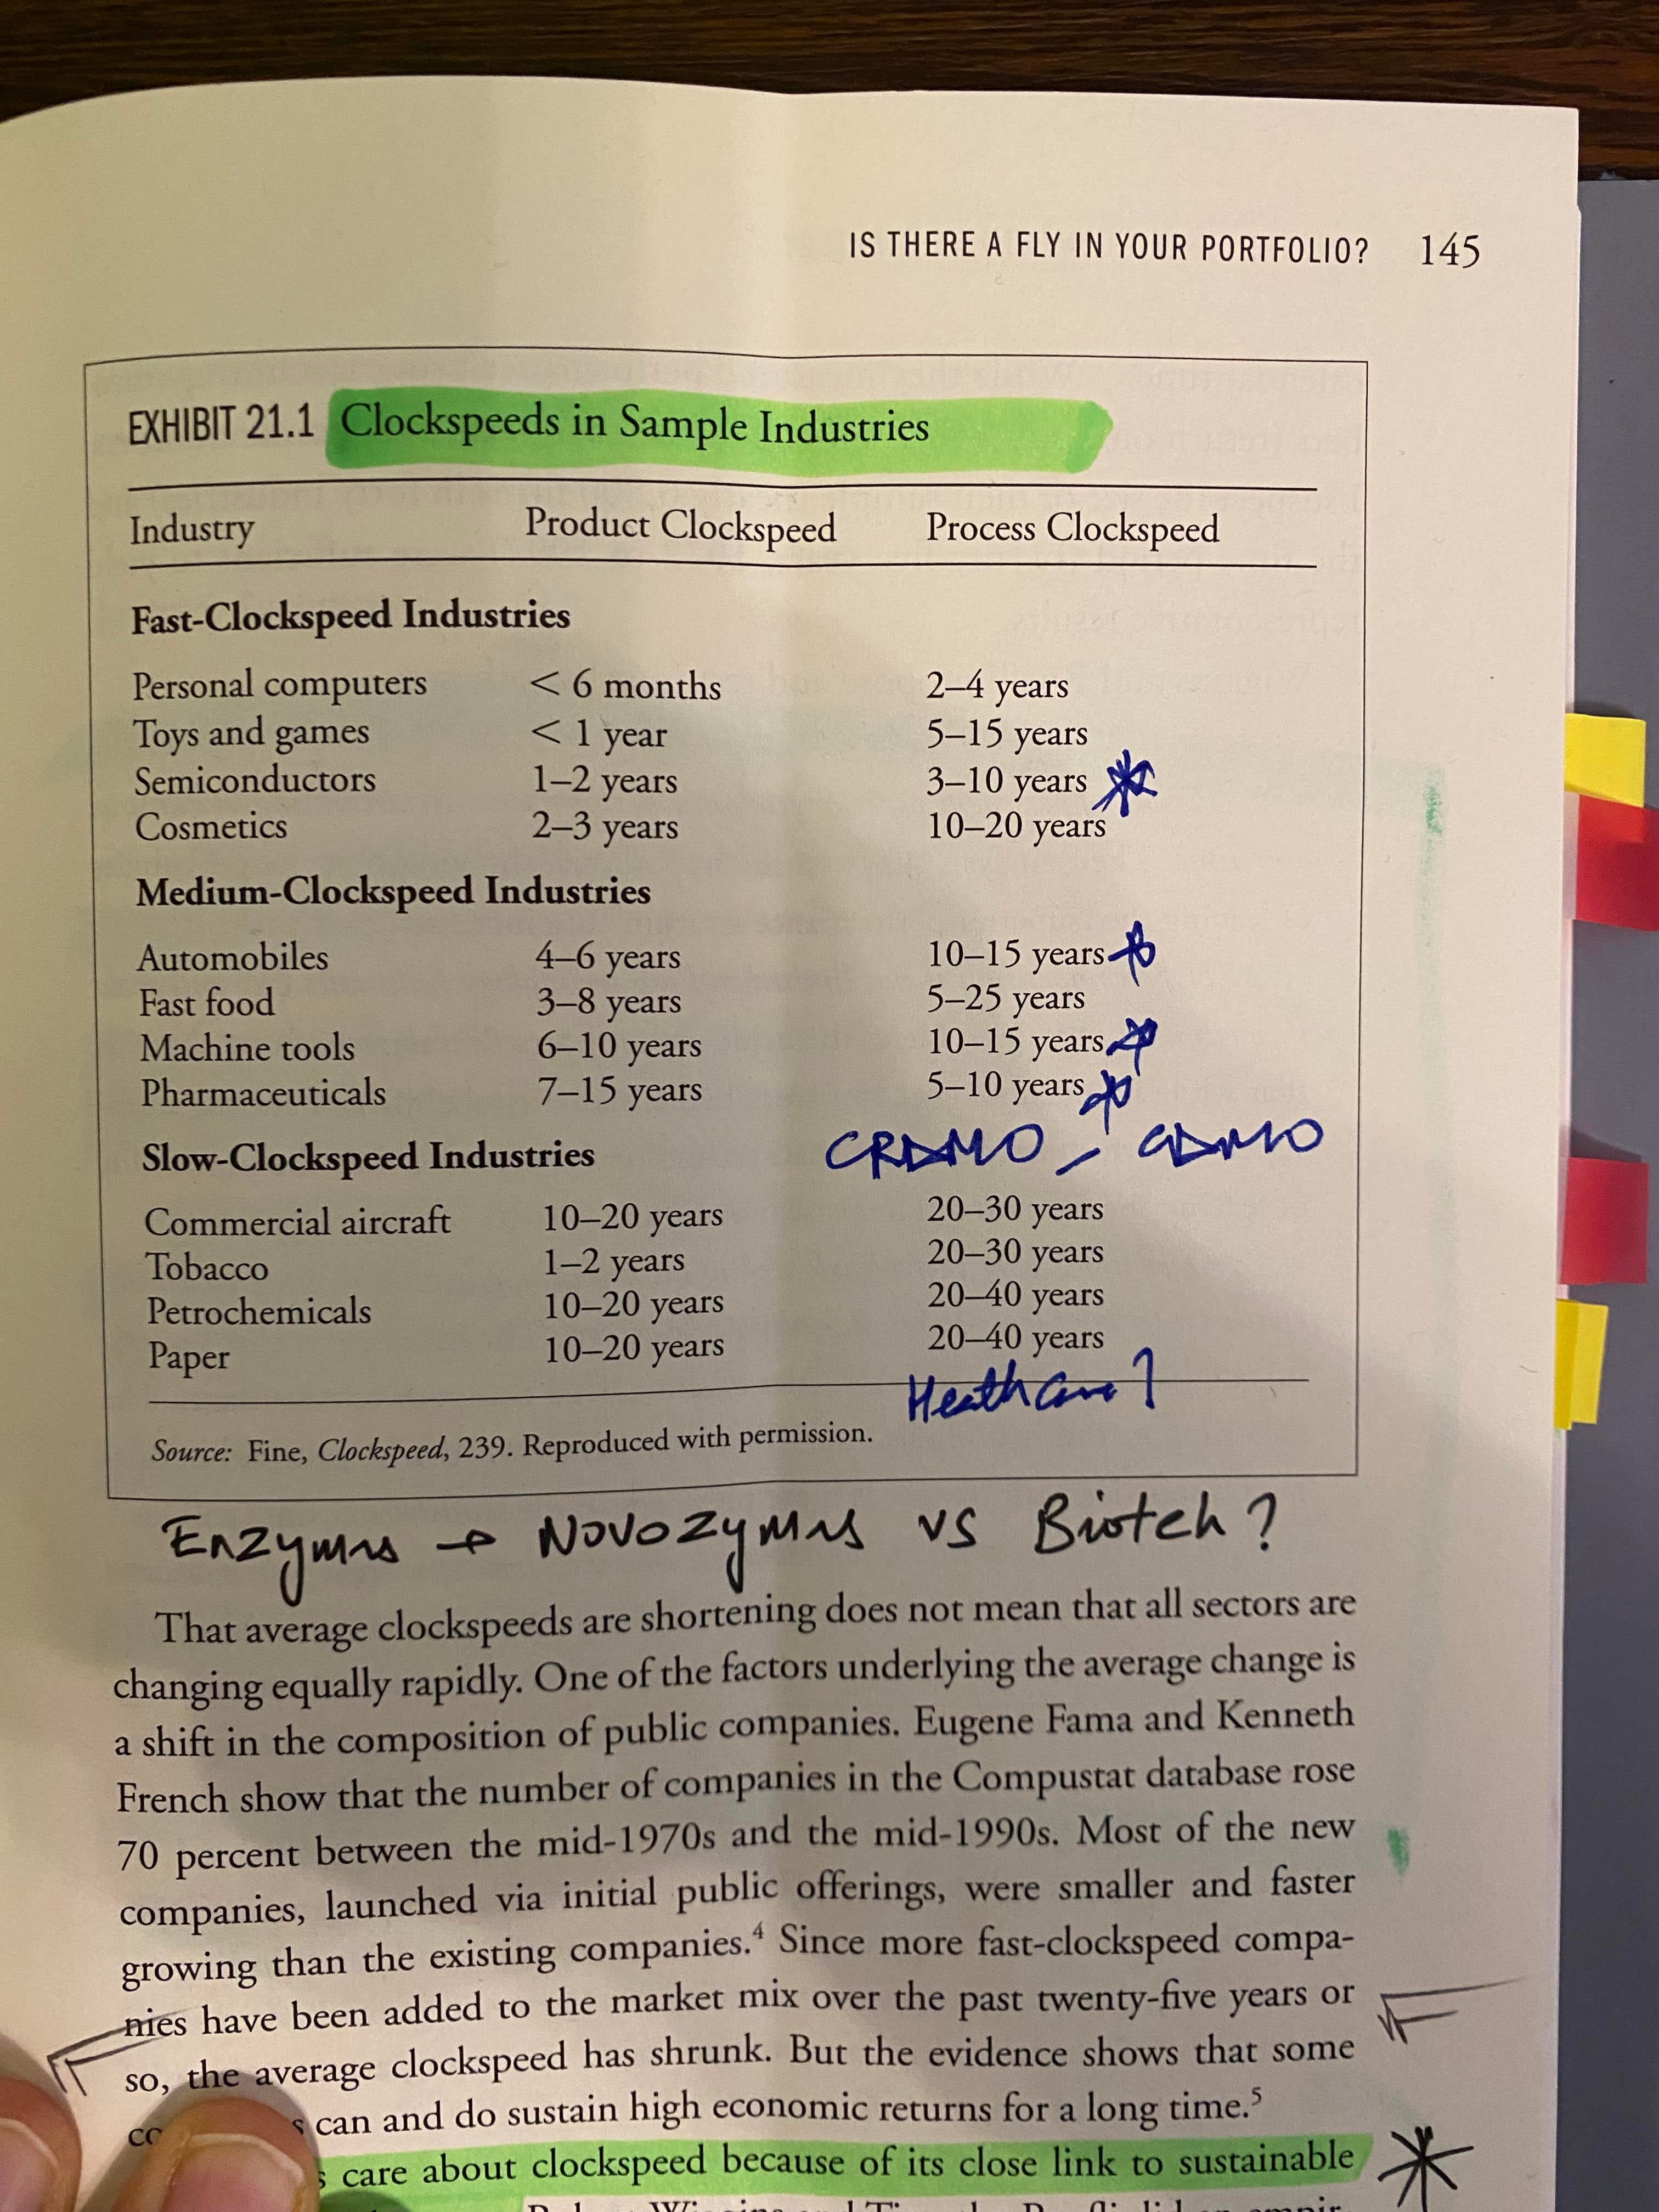 IS THERE A FLY IN YOUR PORTFOLIO? 145
EXHIBIT 21.1 Clockspeeds in Sample Industries
Industry Product Clockspeed Process Clockspeed
Fast-Clockspeed Industries
Personal computers < 6 months 2–4 years
Toys and games < 1 year 5–15 years
Semiconductors 1–2 years 3–10 years
Cosmetics 2–3 years 10–20 years
Medium-Clockspeed Industries
Automobiles 4–6 years 10–15 years
Fast food 3–8 years 5–25 years
Machine tools 6–10 years 10–15 years
Pharmaceuticals 7–15 years 5–10 years
CRDMO - CDMO
Slow-Clockspeed Industries
Commercial aircraft 10–20 years 20–30 years
Tobacco 1–2 years 20–30 years
Petrochemicals 10–20 years 20–40 years
Paper 10–20 years 20–40 years
Heathcare?
Source: Fine, Clockspeed, 239. Reproduced with permission.
Enzymes → Novozymes vs Biotech?
That average clockspeeds are shortening does not mean that all sectors are
changing equally rapidly. One of the factors underlying the average change is
a shift in the composition of public companies. Eugene Fama and Kenneth
French show that the number of companies in the Compustat database rose
70 percent between the mid-1970s and the mid-1990s. Most of the new
companies, launched via initial public offerings, were smaller and faster
growing than the existing companies.⁴ Since more fast-clockspeed compa-
nies have been added to the market mix over the past twenty-five years or
so, the average clockspeed has shrunk. But the evidence shows that some
can and do sustain high economic returns for a long time.⁵
care about clockspeed because of its close link to sustainable